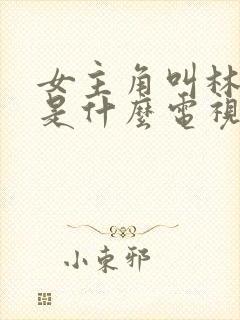 女主角叫林
是什麼電視
小東邪